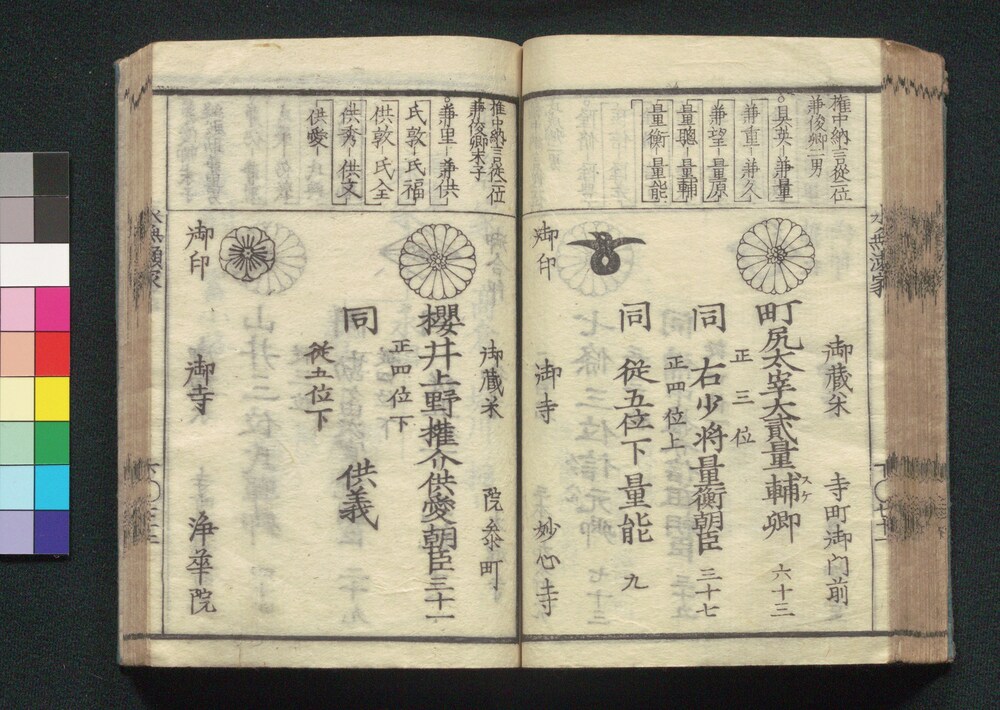 権中納言従二位
兼俊卿二男
具英 兼量
兼重 兼久
兼望 量原
量聰 量輔
量衡 量能
御蔵米 寺町御門前
町尻太宰大貳量輔卿 六十三
スケ
正三位
同 右少将量衡朝臣 三十七
正四位上
同 従五位下量能 九
御印 御寺 妙心寺
水無瀬家
権中納言従二位
兼俊卿末子
兼里 兼供
氏敦 氏福
供敦 氏全
供秀 供文
供愛
御蔵米 院参町
櫻井上野権介供愛朝臣 三十二
正四位下
同 供義
従五位下
御印 御寺 浄華院
水無瀬家